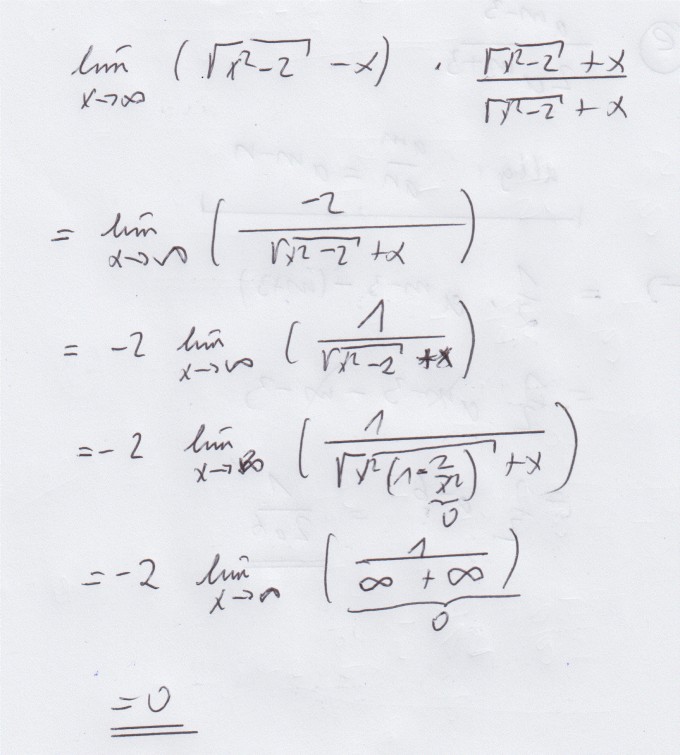 lim x→∞ (√(x²-2) - x) · (√(x²-2) + x)/(√(x²-2) + x)
= lim x→∞ (-2/(√(x²-2) + x))
= -2 lim x→∞ (1/(√(x²-2) + x))
= -2 lim x→∞ (1/(√(x²(1-2/x²)) + x))
0
= -2 lim x→∞ (1/(∞ + ∞))
0
= 0